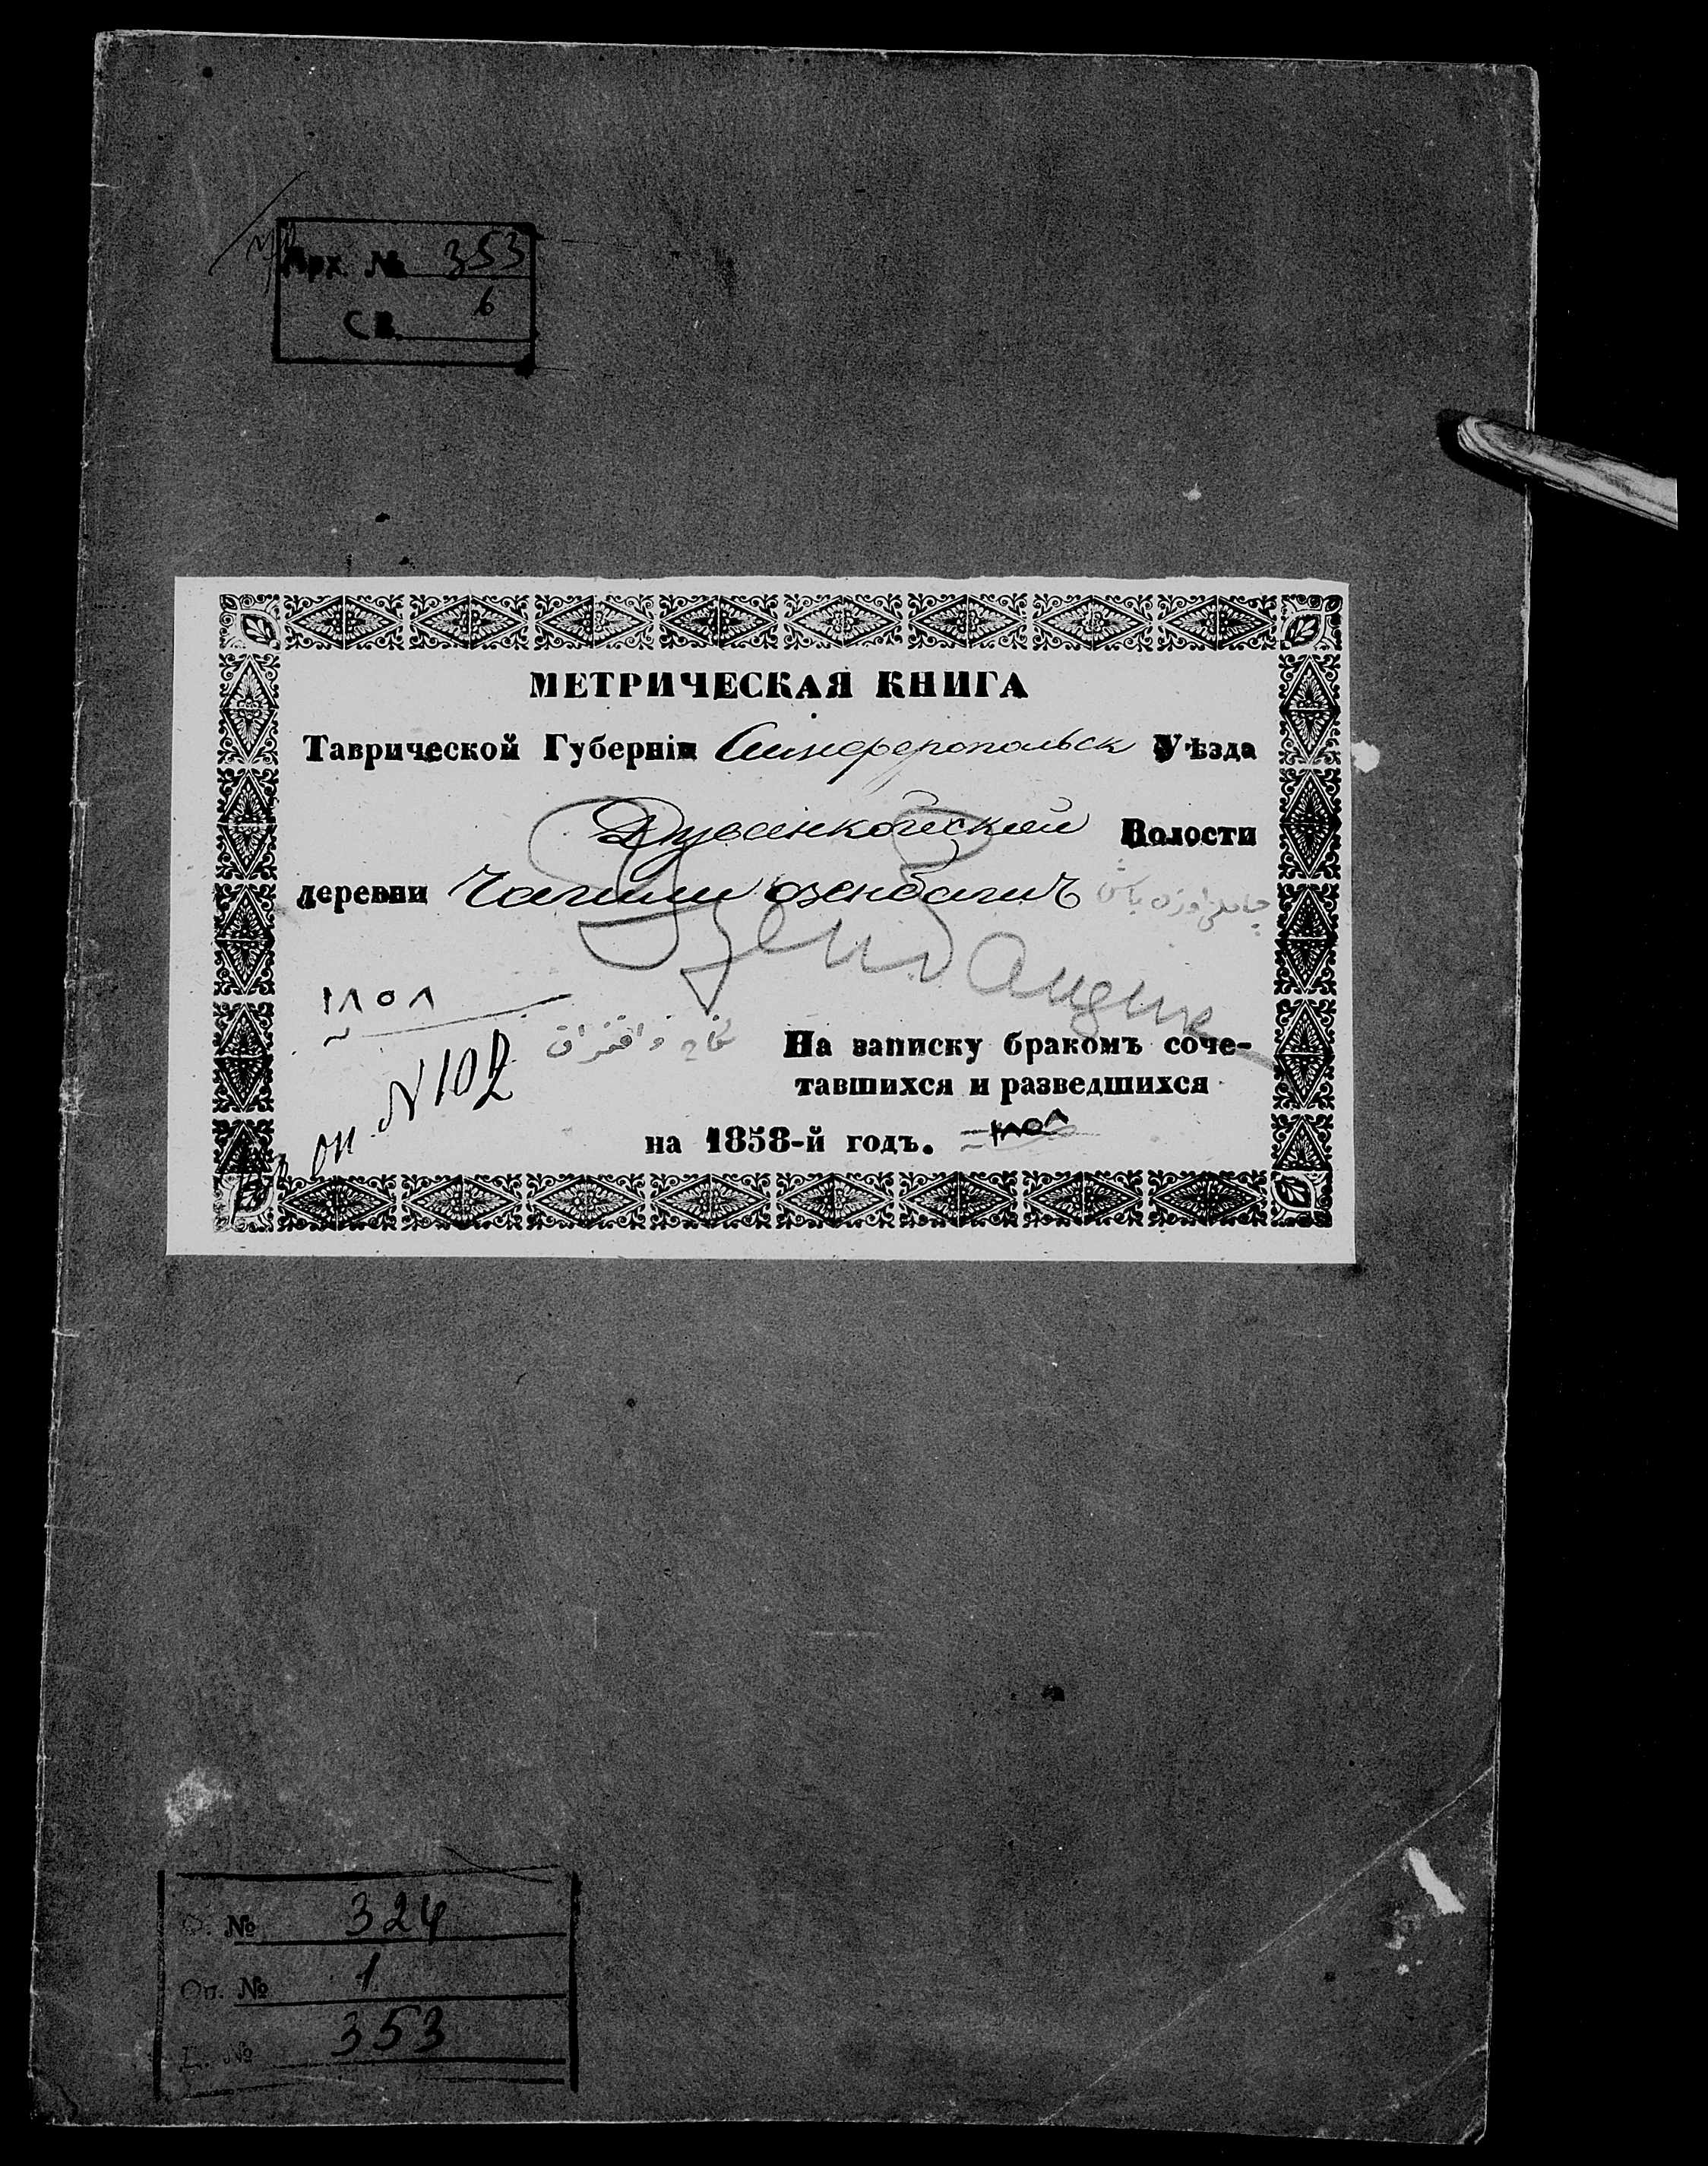 Арх. № 353
СВ. 6
МЕТРИЧЕСКАЯ КНИГА
Таврической Губерніи Симферопольск Уѣзда
Дуванкойской Волости
деревни озенбашъ
١٨٥٨
оп. N 102
На записку бракомъ соче-
тавшихся и разведшихся
на 1858-й годъ. ١٨٥٨
Ф. № 324
Оп. № 1
Д. № 353